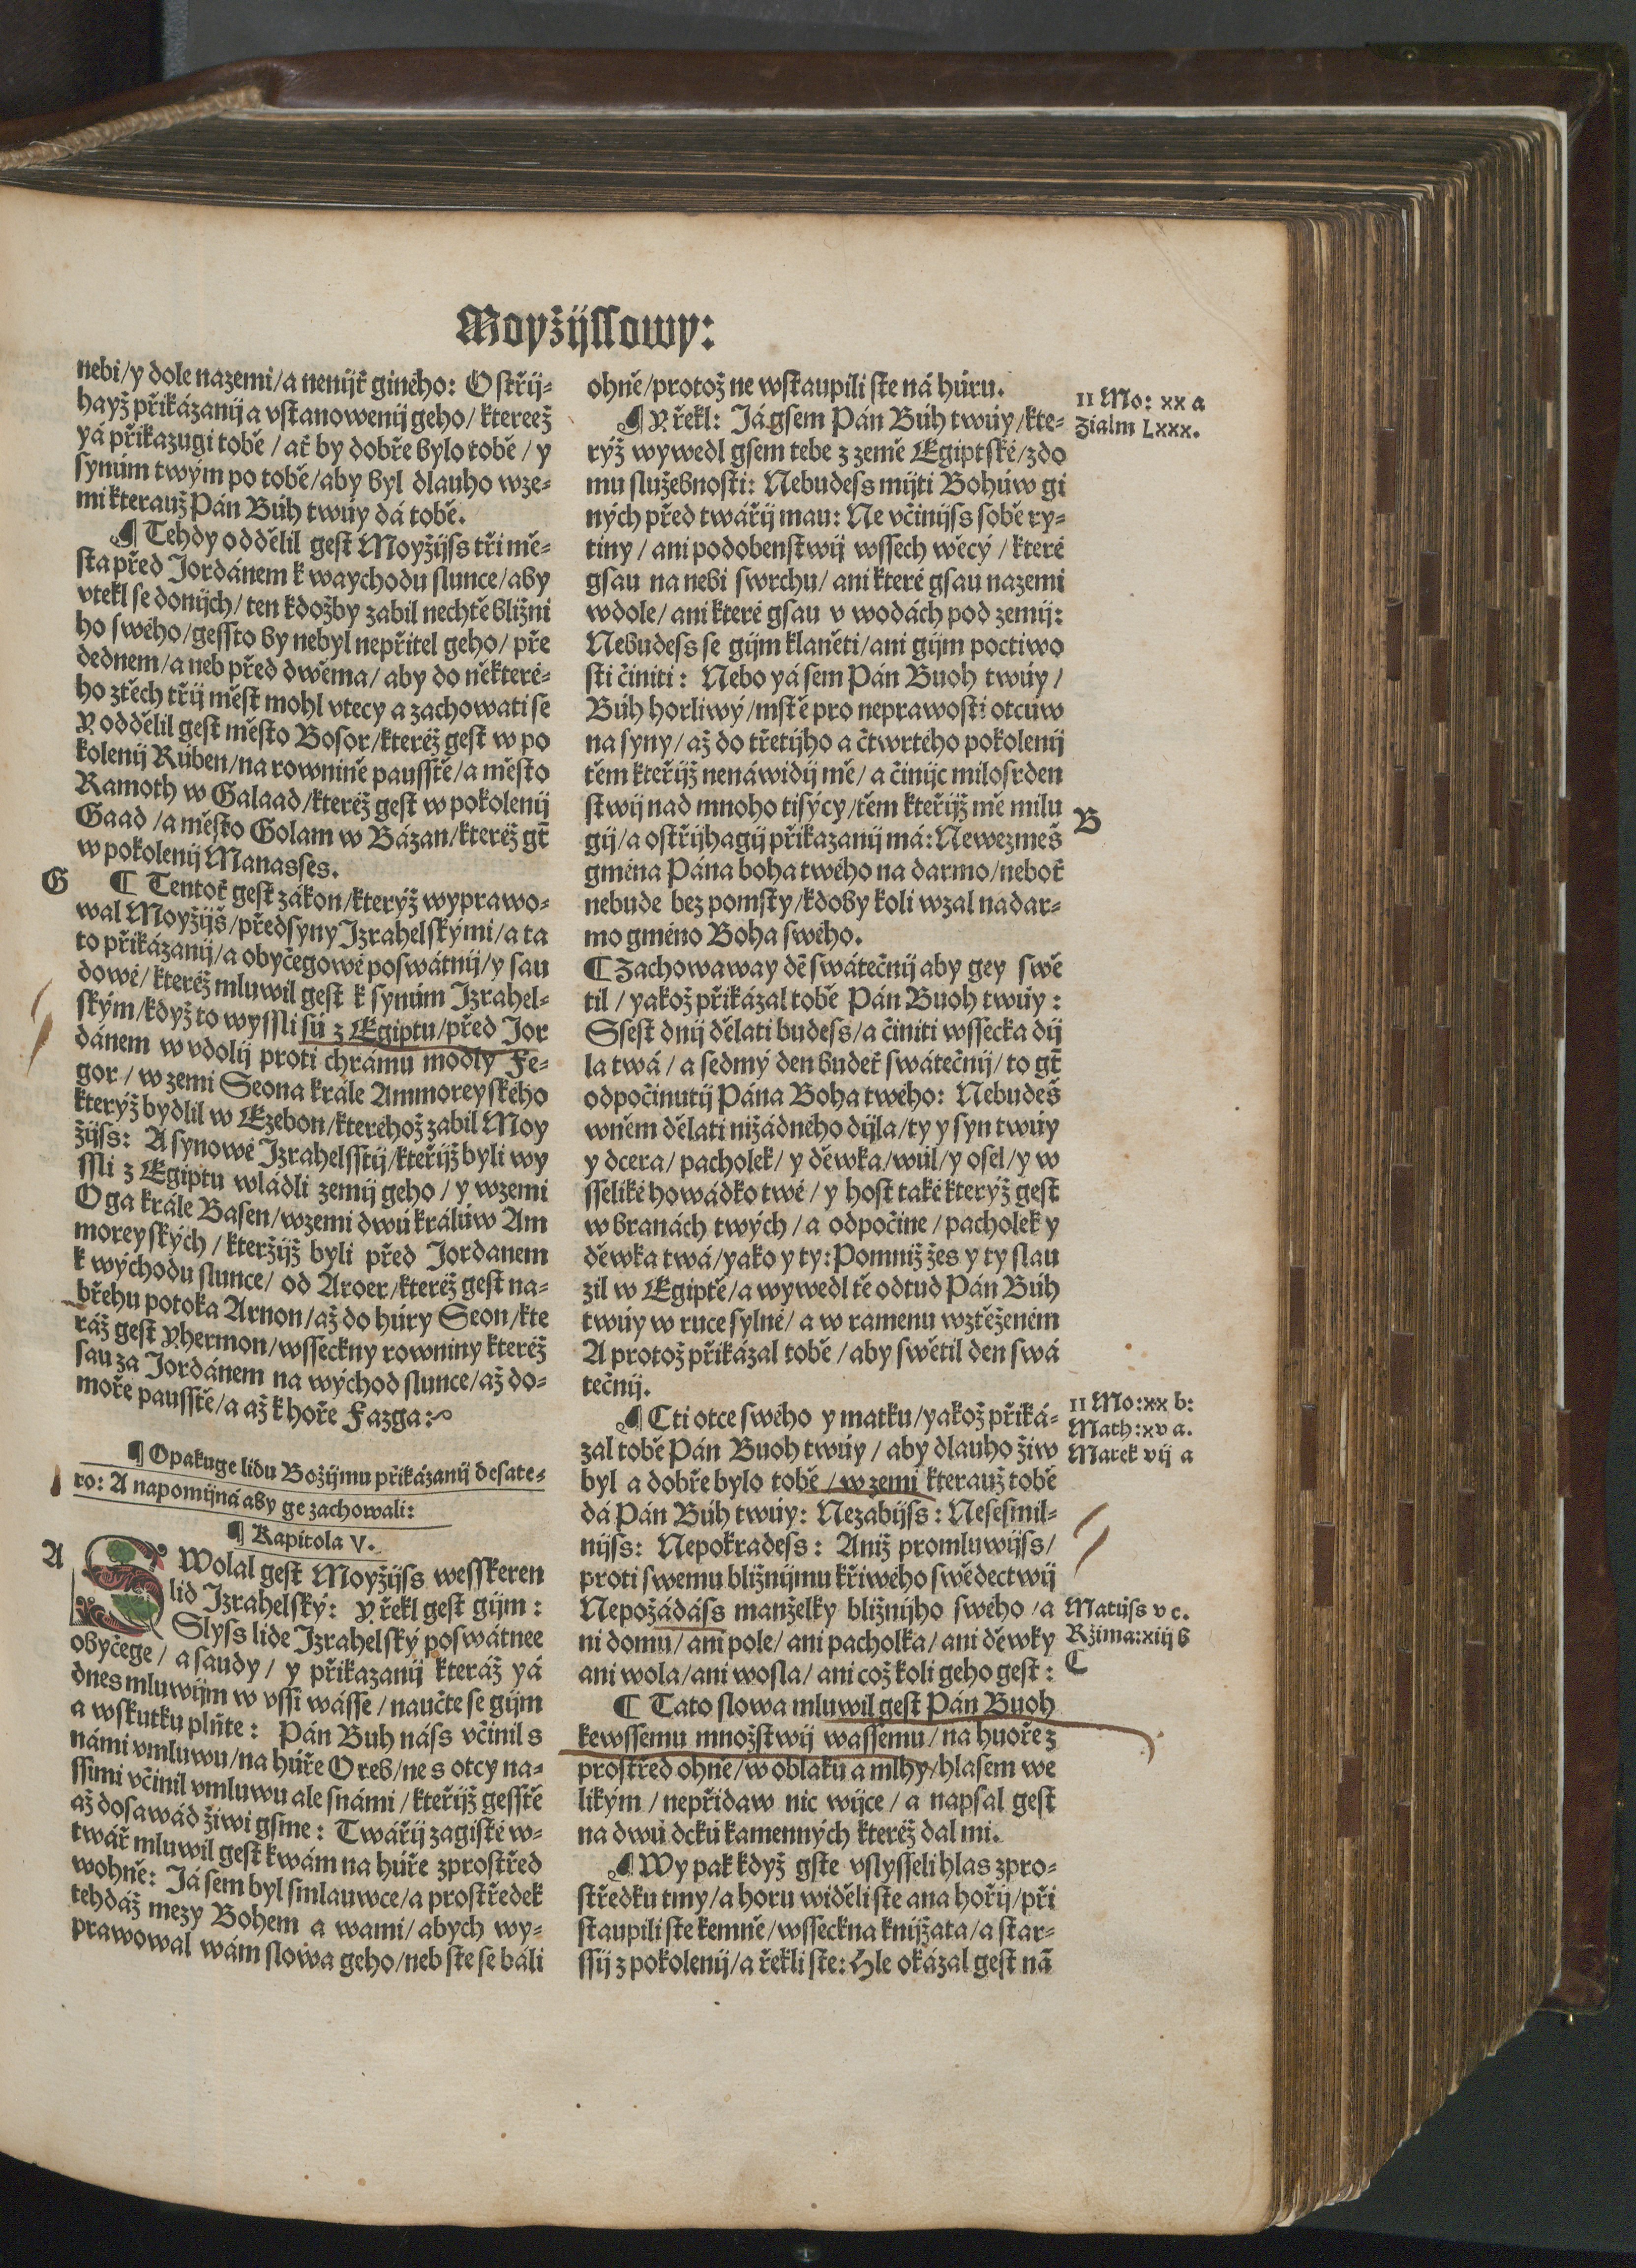 Moyžijssowy:
nebi/y dole nazemi/a nenijť giného: Ostřij-
hayž přikázanij a vstanowenij geho/ktereež
yá přikazugi tobě/ať by dobře bylo tobě/y
synúm twým po tobě/aby byl dlauho wze-
mi kterauž Pán Búh twúy dá tobě.
¶ Tehdy oddělil gest Moyžijss tři mě-
sta před Jordánem k waychodu slunce/aby
vtekl se donijch/ten kdožby zabil nechtě bližni
ho swého/gessto by nebyl nepřitel geho/pře
dednem/a neb před dwěma/aby do některé-
ho ztěch třij měst mohl vtecy a zachowati se
Y oddělil gest město Bosor/kteréž gest w po
kolenij Rúben/na rownině paussтě/a město
Ramoth w Galaad/kteréž gest w pokolenij
Gaad/a město Golam w Bázan/kteréž gt̃
w pokolenij Manasses.
G
¶ Tentoť gest zákon/kterýž wyprawo-
wal Moyžijš/předsyny Izrahelskými/a ta
to přikázanij/a obyčegowé poswátnij/y sau
dowé/kteréž mluwil gest k synúm Izrahel-
ským/když to wyssli sú z Egiptu/před Jor
dánem w vdolij proti chrámu modly Fe-
gor/w zemi Seona krále Ammoreyského
kterýž bydlil w Ezebon/kteréhož zabil Moy
žijss: A synowé Izrahelsstij/kteřijž byli wy
ssli z Egiptu wládli zemij geho/y wzemi
Oga krále Basen/wzemi dwú králúw Am
moreyských/kteržijž byli před Jordanem
k východu slunce/od Aroer/kteréž gest na-
břehu potoka Arnon/až do húry Seon/kte
ráž gest Yhermon/wsseckny rowniny kteréž
sau za Jordánem na wýchod slunce/až do-
moře paussтě/a až k hoře Fazga:
¶ Opakuge lidu Božijmu přikázanij desate-
ro: A napomijná aby ge zachowali:
¶ Kapitola V.
A
SWolal gest Moyžijss wesskeren
lid Izrahelský: Y řekl gest gijm:
Slyss lide Izrahelský poswátnee
obyčege/a saudy/y přikazanij kteráž yá
dnes mluwijm w vssi wásse/naučte se gijm
a wskutku plňte: Pán Buh náss včinil s
námi vmluwu/na húře Oreb/ne s otcy na-
ssimi včinil vmluwu ale snámi/kteřijž gesstě
až dosawád živi gsme: Twářij zagisté w-
twář mluwil gest kwám na húře zprostřed
wohně: Já sem byl smlauwce/a prostředek
tehdáž mezy Bohem a wami/abych wy-
prawowal wám slowa geho/neb ste se báli
ohně/protož ne wstaupili ste ná húru.
II Mo: xx a
Žialm Lxxx.
¶ Y řekl: Já gsem Pán Búh twúy/kte-
rýž wywedl gsem tebe z země Egiptské/zdo
mu služebnosti: Nebudess mijti Bohúw gi
ných před twářij mau: Ne včinijss sobě ry-
tiny/ani podobenstwij wssech wěcý/které
gsau na nebi swrchu/ani které gsau nazemi
wdole/ani které gsau v wodách pod zemij:
Nebudess se gijm klaněti/ani gijm poctiwo
sti činiti: Nebo yá sem Pán Buoh twúy/
Búh horliwý/mstě pro neprawosti otcúw
na syny/až do třetijho a čtwrtého pokolenij
těm kteřijž nenáwidij mě/a činijc milosrden
stwij nad mnoho tisýcy/těm kteřijž mě milu
B
gij/a ostřijhagij přikazanij má: Newezmeš
gména Pána boha twého na darmo/neboť
nebude bez pomsty/kdoby koli wzal nadar-
mo gméno Boha swého.
¶ Zachowaway dẽ swátečnij aby gey swě
til/yakož přikázal tobě Pán Buoh twúy:
Ssest dnij dělati budess/a činiti wssecka dij
la twá/a sedmý den budeť swátečnij/to gt̃
odpočinutij Pána Boha twého: Nebudeš
wněm dělati nižádného dijla/ty y syn twúy
y dcera/pacholek/y děwka/wúl/y osel/y w
sseliké howádko twé/y host také kterýž gest
w branách twých/a odpočine/pacholek y
děwka twá/yako y ty: Pomniž žes y ty slau
žil w Egiptě/a wywedl tě odtud Pán Búh
twúy w ruce sylné/a w ramenu wztěženém
A protož přikázal tobě/aby swětil den swá
tečnij.
II Mo: xx b:
Math: xv a.
Marek vij a
¶ Cti otce swého y matku/yakož přiká-
zal tobě Pán Buoh twúy/aby dlauho žiw
byl a dobře bylo tobě/w zemi kterauž tobě
dá Pán Búh twúy: Nezabijss: Nesesmil-
nijss: Nepokradess: Aniž promluwijss/
proti swemu bližnijmu křiwého swědectwij
Nepožádáss manželky bližnijho swého/a
Matijss v c.
Ržima: xiij b
ni domu/ani pole/ani pacholka/ani děwky
C
ani wola/ani wosla/ani což koli geho gest:
¶ Tato slowa mluwil gest Pán Buoh
kewssemu množstwij wassemu/na huoře z
prostřed ohně/w oblaku a mlhy/hlasem we
likým/nepřidaw nic wijce/a napsal gest
na dwú dckú kamenných kteréž dal mi.
¶ Wy pak když gste vslysseli hlas zpro-
středku tmy/a horu widěli ste ana hořij/při
staupili ste kemně/wsseckna knijžata/a star-
ssij z pokolenij/a řekli ste: Hle okázal gest nã